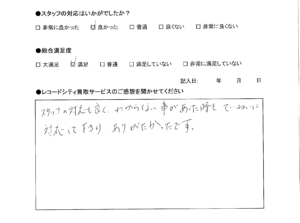 ●スタッフの対応はいかがでしたか?
□ 非常に良かった ☑ 良かった □ 普通 □ 良くない □ 非常に良くない
●総合満足度
□ 大満足 ☑ 満足 □ 普通 □ 満足していない □ 非常に満足していない
記入日: 年 月 日
●レコードシティ買取サービスのご感想を聞かせてください
スタッフの対応も良く、わからない事があった時もていねいに
対応して下さり ありがたかったです。